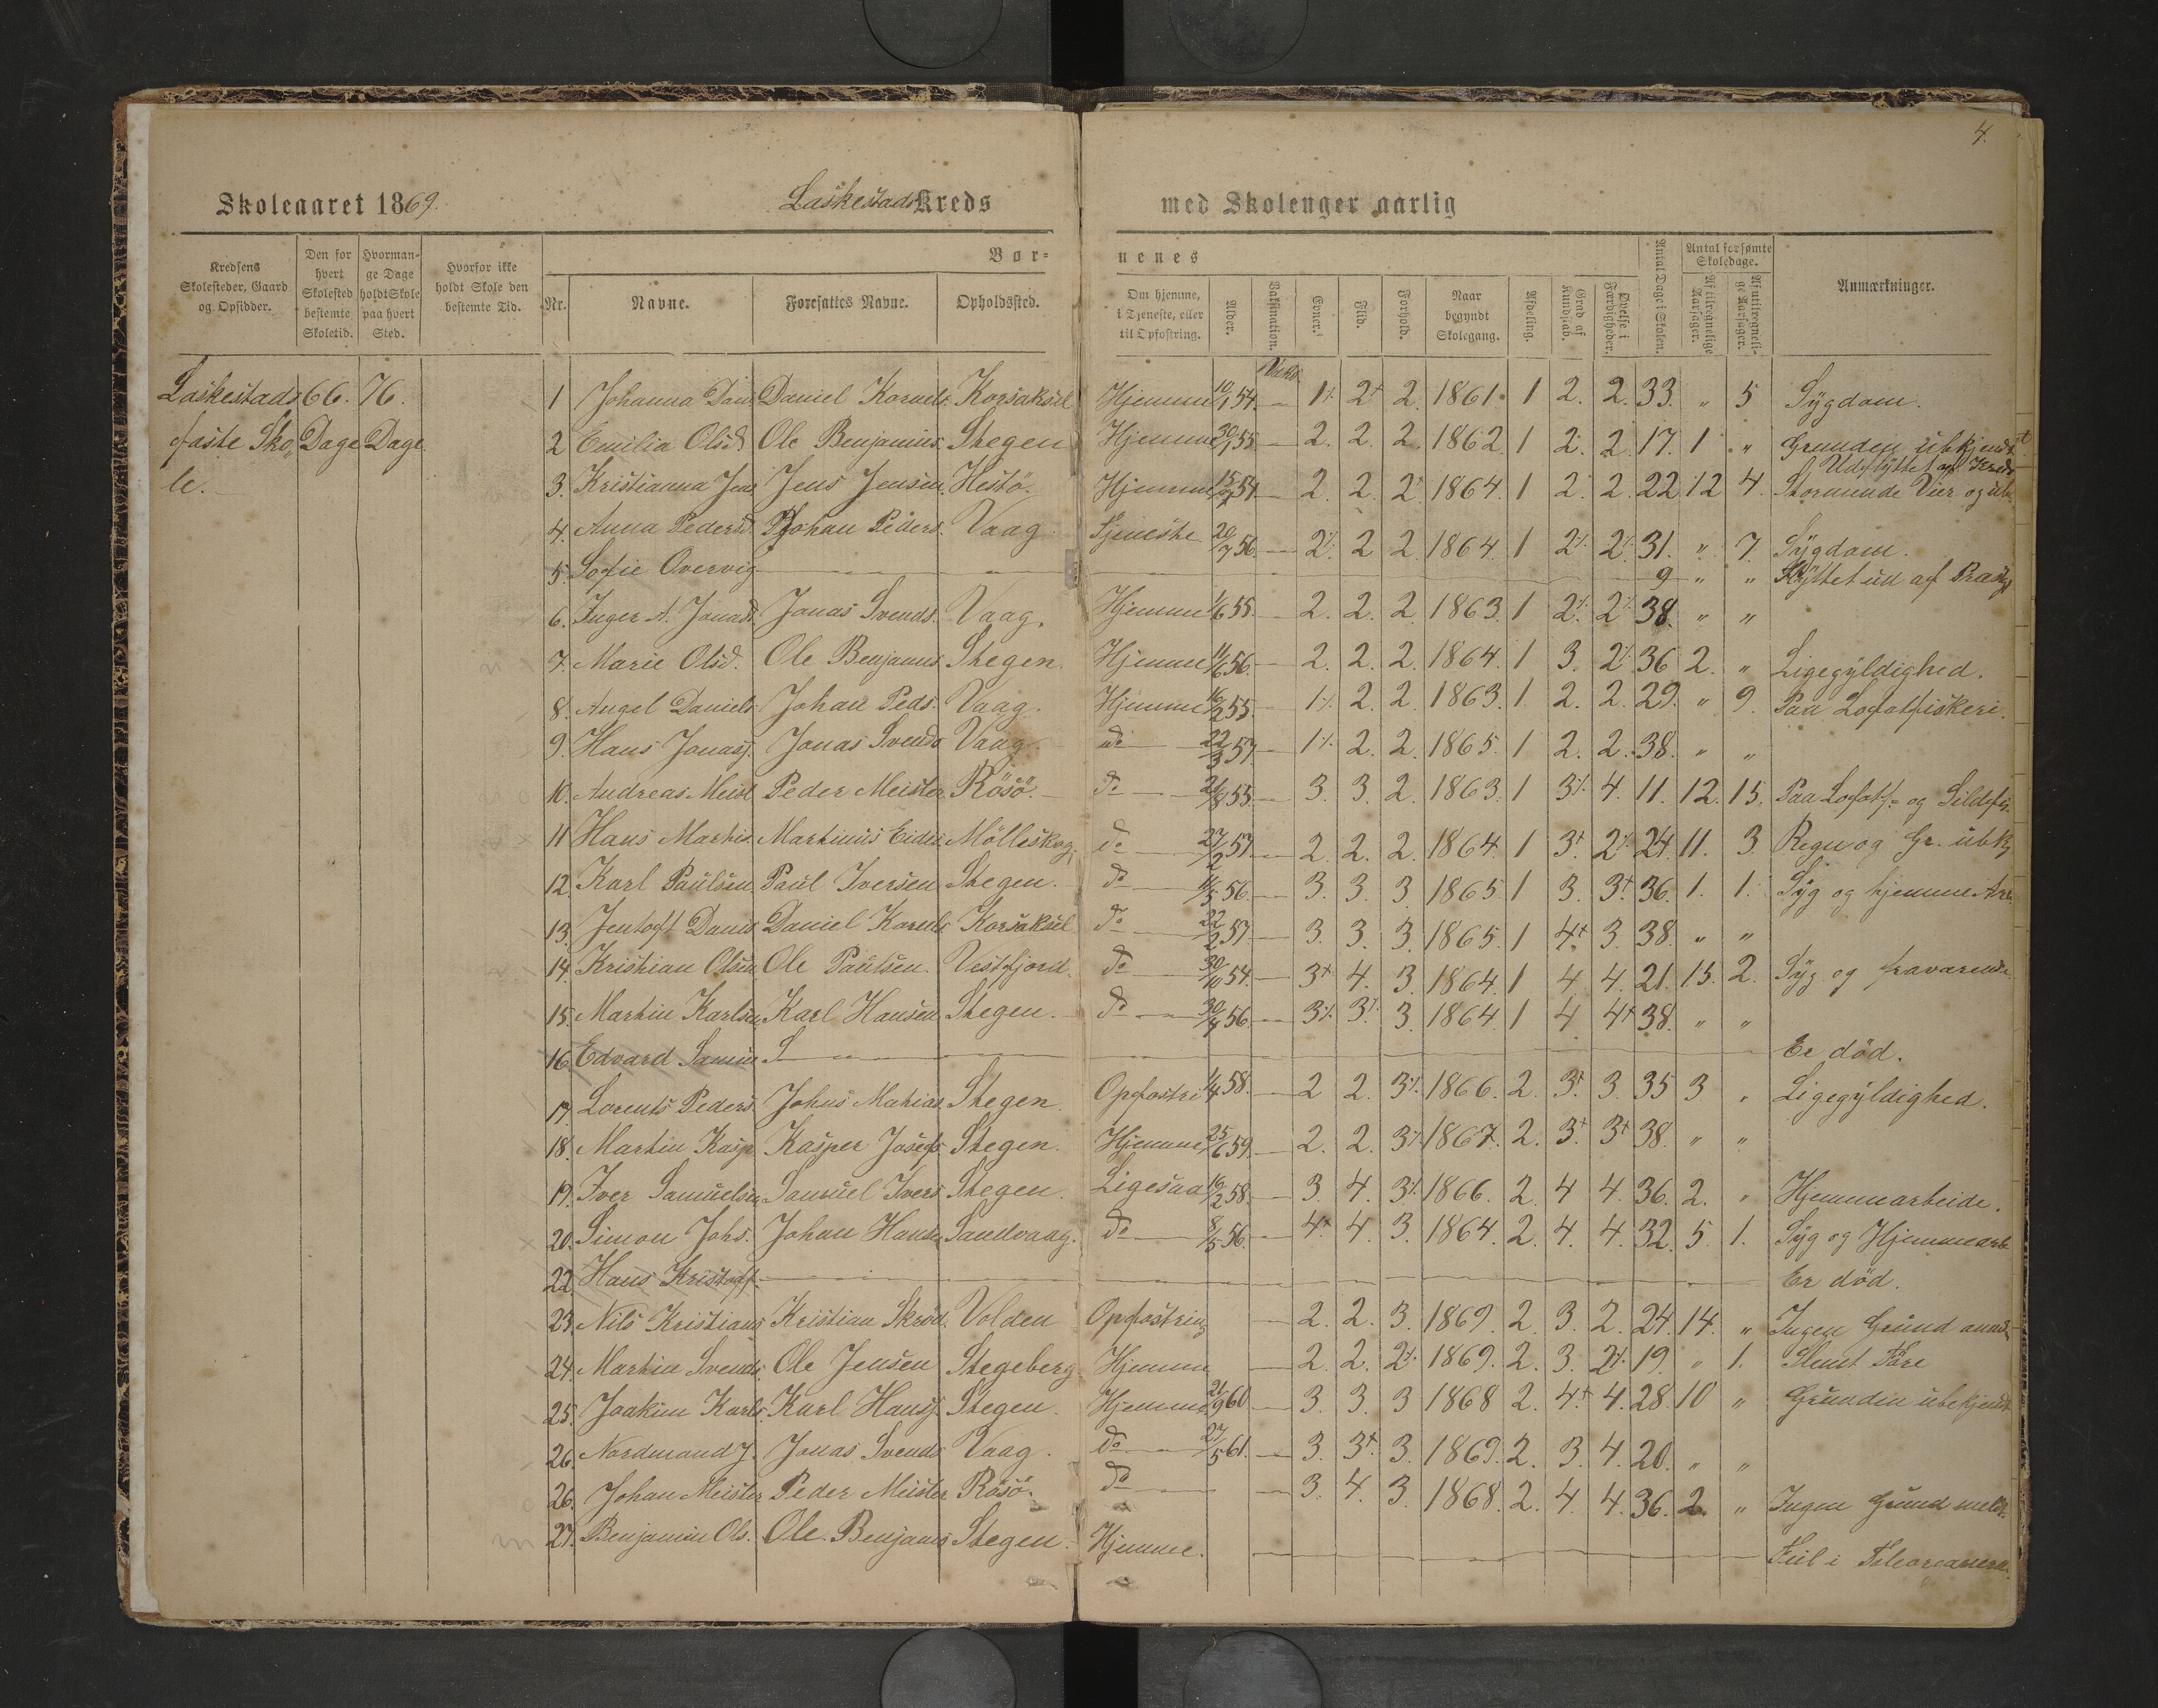 4.
Skoleaaret 1869. Laskestads Kreds med Skolenger aarlig
Kredsens Skolesteder, Gaard og Opsidder. Den for hvert Skolested bestemte Skoletid. Hvormange Dage holdt Skole paa hvert Sted. Hvorfor ikke holdt Skole den bestemte Tid. Børnenes
Nr. Navne. Foresattes Navne. Opholdssted. Om hjemme, i Tjeneste, eller til Opfostring. Alder. Vaksination. Evner. Flid. Forhold. Naar begyndt Skolegang. Afdeling. Grad af Kundskab. Øvelse i Færdigheder. Antal Dage i Skolen. Antal forsømte Skoledage. Af tilregnelige Aarsager. Af utilregnelige Aarsager. Anmærkninger.
Laskestads 66. 76.
faste Sko„ Dage Dage
le.
Vaks
1 Johanna Dan Daniel Kornels. Korsaksel Hjemme 10/1 54. — 1⁒. 2+ 2. 1861. 1 2. 2. 33. „ 5 Sygdom.
2 Emilia Olsd Ole Benjamins. Stegen Hjemme 30/1 55 — 2. 2. 2. 1862. 1 2. 2. 17. 1. „ Grunden ubekjendt
Udflyttet af Kreds
3. Kristianna Jens Jens Jensen. Hestö. Hjemme 54 — 2. 2. 2. 1864. 1 2. 2. 22 12 4. Stormende Veir og ub.
4. Anna Pedersd. Johan Peders. Vaag. Tjeneste 20/7 56. — 2⁒. 2 2. 1864. 1 2⁒. 2⁒. 31. „ 7. Sygdom.
5. Sofie Overvig — — — 9 „ „ Flyttet ud af Præstg
6. Inger A. Jonasd. Jonas Svends. Vaag. Hjemme 1/6 55. — 2. 2. 2. 1863. 1 2⁒. 2⁒. 38. „ „
7. Marie Olsd. Ole Benjamins Stegen. Hjemme 11/6 56. — 2. 2. 2. 1864. 1 3. 2⁒. 36 2. „ Ligegyldighed.
8. Angel Daniels Johan Peds. Vaag. Hjemme 16/2 55. 1⁒. 2. 2. 1863. 1 2. 2. 29. „ 9. Paa Lofotfiskeri.
9. Hans Jonass. Jonas Svends Vaag. do — 22/3 57. — 1⁒. 2. 2. 1865. 1 2. 2. 38. „ „
10. Andreas Meist Peder Meister Rösö. — do — 21/8 55. — 3. 3. 2. 1863. 1 3⁒. 4. 11. 12. 15. Paa Lofotf- og Sildefis.
11 Hans Martin. Martinus Eider. Mölleskog. do — 27/2 57. — 2. 2. 2. 1864. 1 3+ 2⁒. 24. 11. 3. Regn og Gr. ubk
12. Karl Paulsen Paul Iversen Stegen. do — 11/5 56. — 3. 3. 3. 1865. 1 3. 3+ 36. 1. 1. Syg og hjemme Arb.
13. Jentoft Daniels Daniel Kornels Korsaksel do — 22/2 57. — 3. 3. 3. 1865. 1 4+ 3. 38. „ „
14. Kristian Olsen Ole Paulsen. Vestfjord. do — 30/10 54. — 3+ 4. 3. 1864. 1 4. 4. 21. 15. 2. Syg og fraværende
15. Martin Karlsen Karl Hansen Stegen. do — 30/4 56. — 3⁒. 3⁒. 3. 1864. 1 4 4+ 38. „ „
16. Edvard Samue S — Er död.
17. Lorents Peders. Johns Matias Stegen. Opfostri 1/4 58. — 2 2. 3⁒. 1866. 2. 3+ 3. 35 3 „ Ligegyldighed.
18. Martin Kasp Kasper Josefs Stegen. Hjemme 25/6 59. — 2. 2. 3⁒. 1867. 2. 3+ 3+ 38. „ „
19. Iver Samuelsen Samuel Ivers Stegen. Ligesaa 16/2 58. — 3. 4. 3⁒. 1866. 2. 4 4. 36. 2. „ Hjemmearbeide.
20. Simon Johs. Johan Hansen Sandvaag. do — 8/5 56. — 4+ 4. 3. 1864. 2. 4. 4. 32. 5. 1. Syg og Hjemmearb
22. Hans Kristoff — Er död.
23. Nils Kristians Kristian Skræd. Volden Opfostring — 2. 2. 3. 1869. 2. 3. 2. 24. 14. „ Ingen Grund anmd
24. Martin Svends. Ole Jensen Stegeberg Hjemme — 2. 2. 2⁒. 1869. 2. 3. 2⁒. 19. „ 1. Slemt Före
25. Joakim Karls. Karl Hanss. Stegen. Hjemme 21/9 60. — 3. 3. 3 1868 2. 4+ 4. 28. 10 „ Grunden ubekjendt
26. Nordmand J. Jonas Svends Vaag. do — 27/5 61. — 3. 3+ 3. 1869. 2. 3. 4. 20. „ „
26. Johan Meister Peder Meister Rösö. do — 3. 4. 3. 1868. 2. 4. 4. 36. 2. „ Ingen Grund meldt.
27. Benjamin Ols. Ole Benjams Stegen. Hjemme. — Feil i